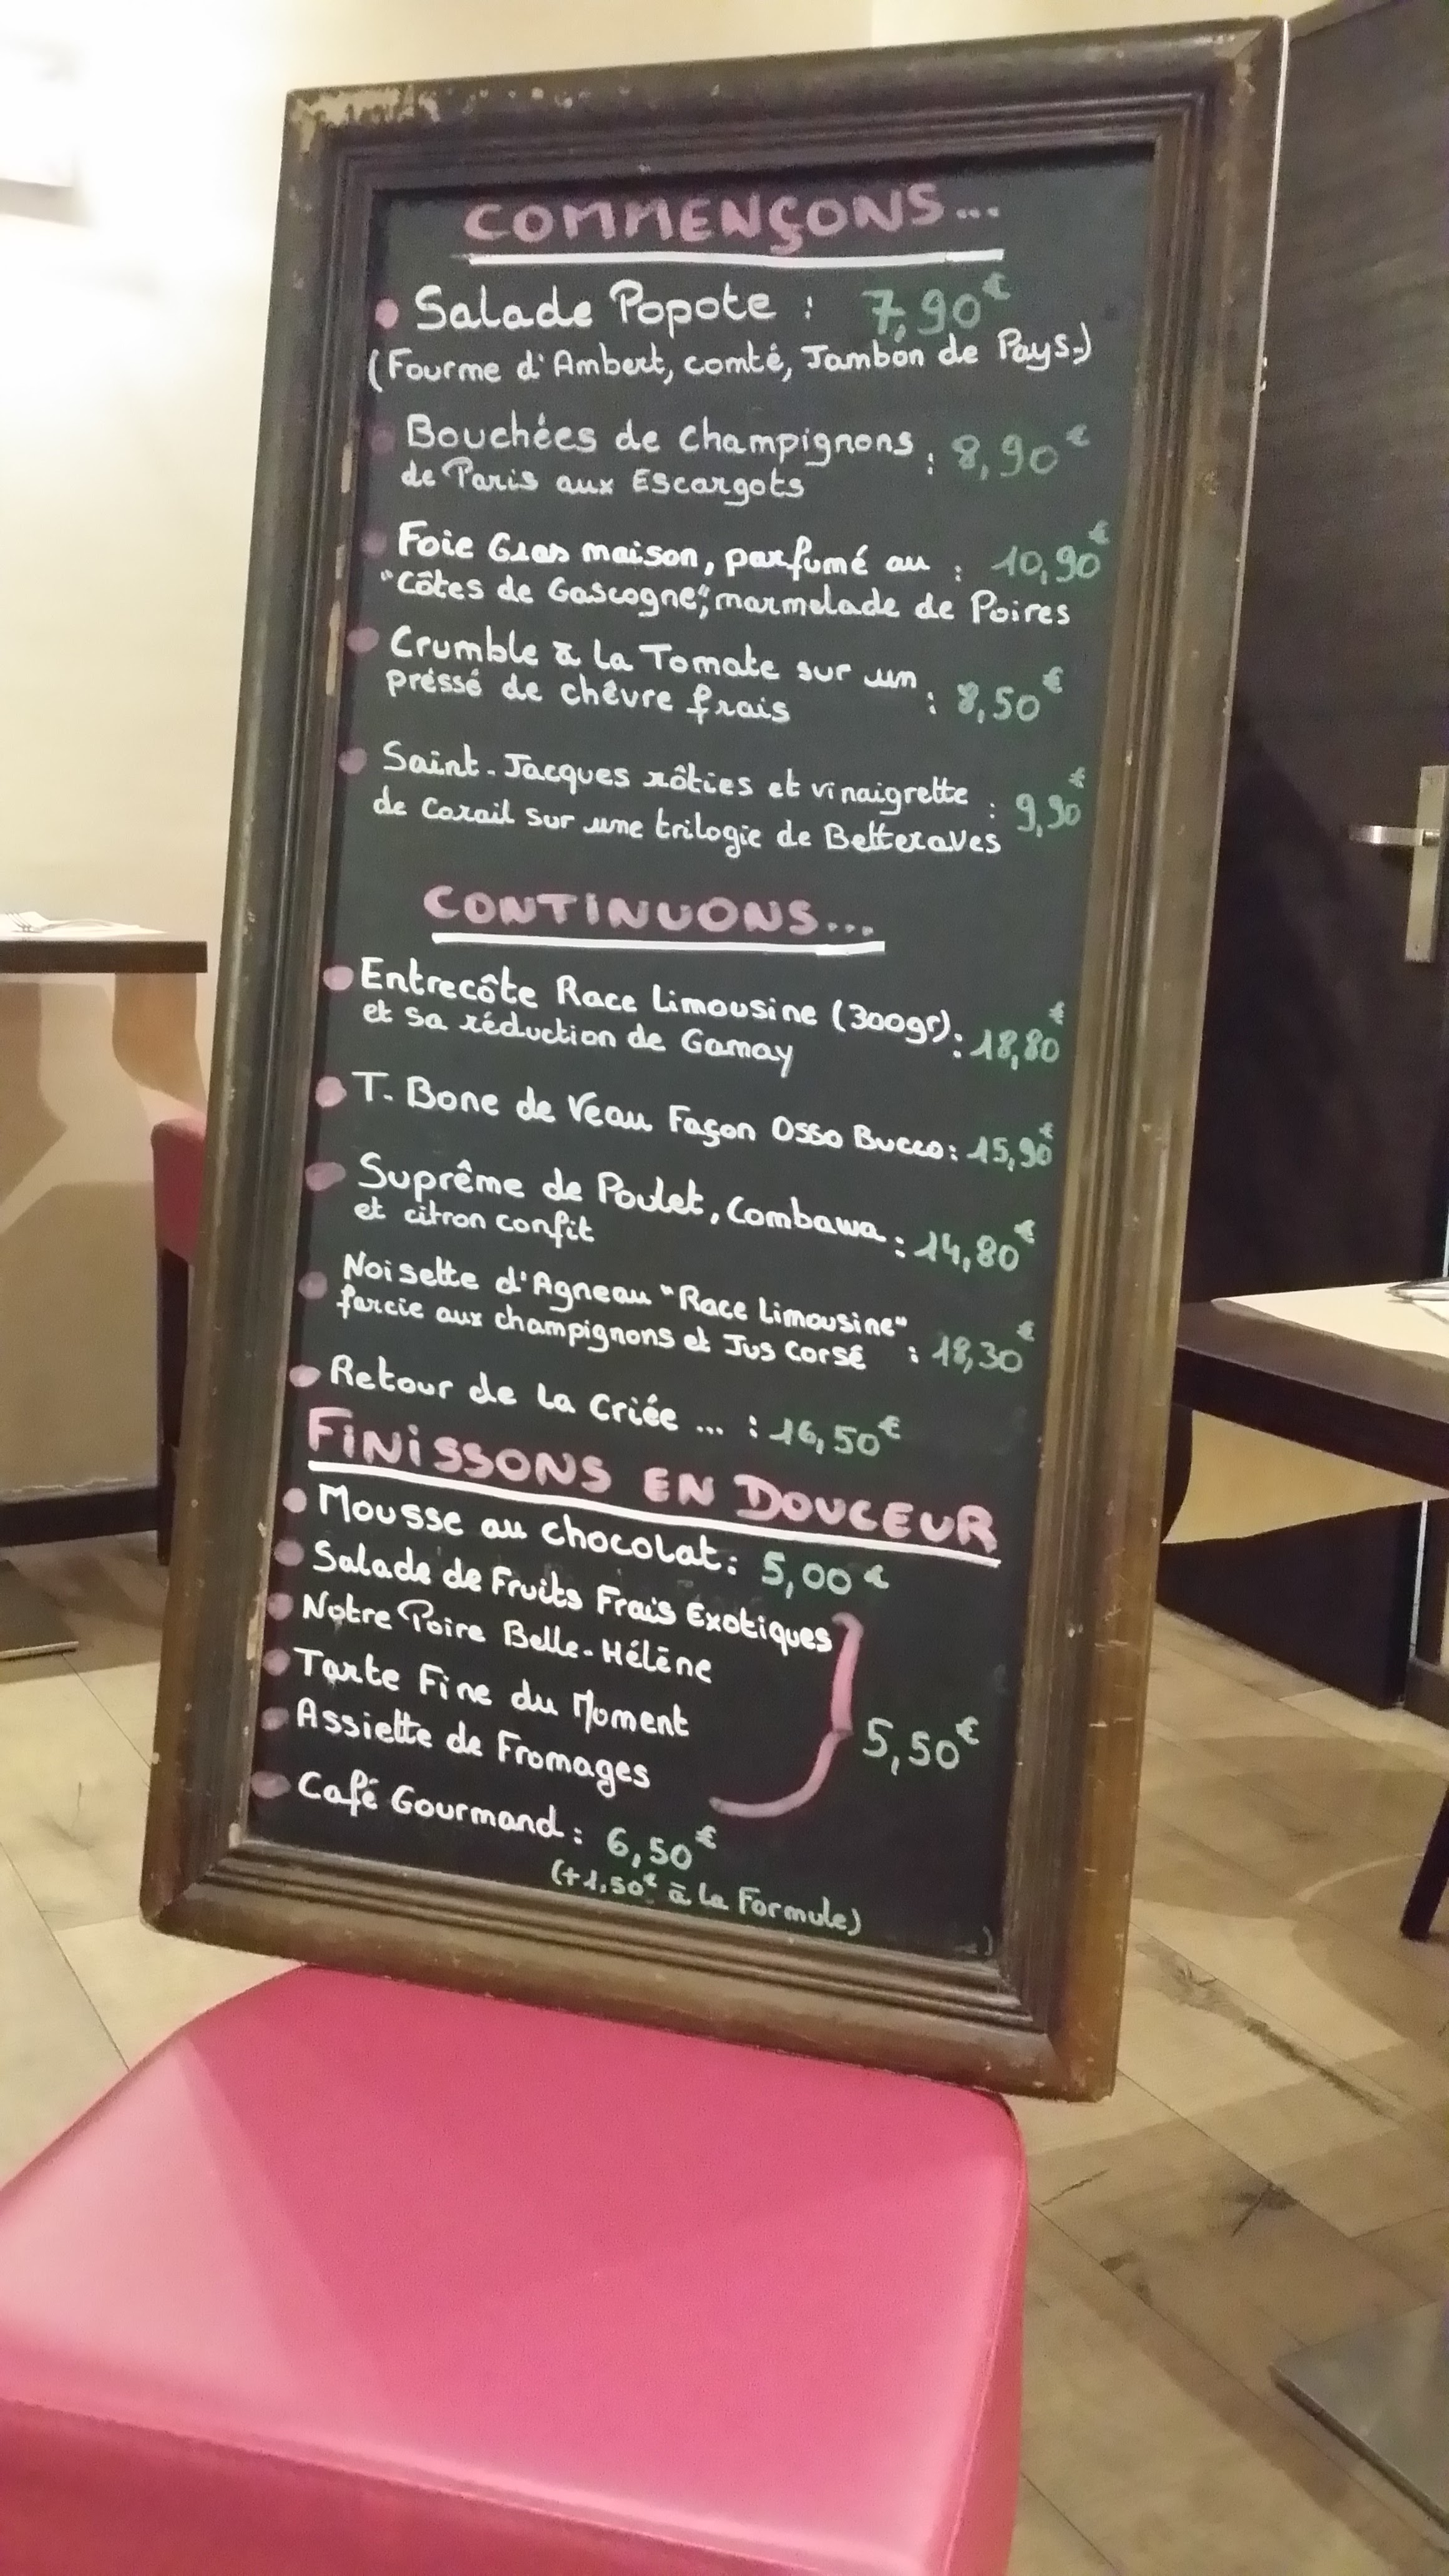 COMMENÇONS...
Salade Popote : 7,90€
(Fourme d'Ambert, comté, Jambon de Pays.)
Bouchées de champignons : 8,90€
de Paris aux Escargots
Foie Gras maison, parfumé au : 10,90€
"Côtes de Gascogne", marmelade de Poires
Crumble à la Tomate sur un
préssé de chêvre frais : 8,50€
Saint-Jacques rôties et vinaigrette : 9,90€
de Corail sur une trilogie de Betteraves
CONTINUONS...
Entrecôte Race Limousine (300gr) : 18,80€
et sa réduction de Gamay
T. Bone de Veau Façon Osso Bucco : 15,90€
Suprême de Poulet, Combawa : 14,80€
et citron confit
Noisette d'Agneau "Race Limousine"
farcie aux champignons et Jus Corsé : 18,30€
Retour de la Criée ... : 16,50€
FINISSONS EN DOUCEUR
Mousse au chocolat : 5,00€
Salade de Fruits Frais Exotiques
Notre Poire Belle-Hélène
Tarte Fine du Moment
Assiette de Fromages
5,50€
Café Gourmand : 6,50€
(+1,50€ à la Formule)